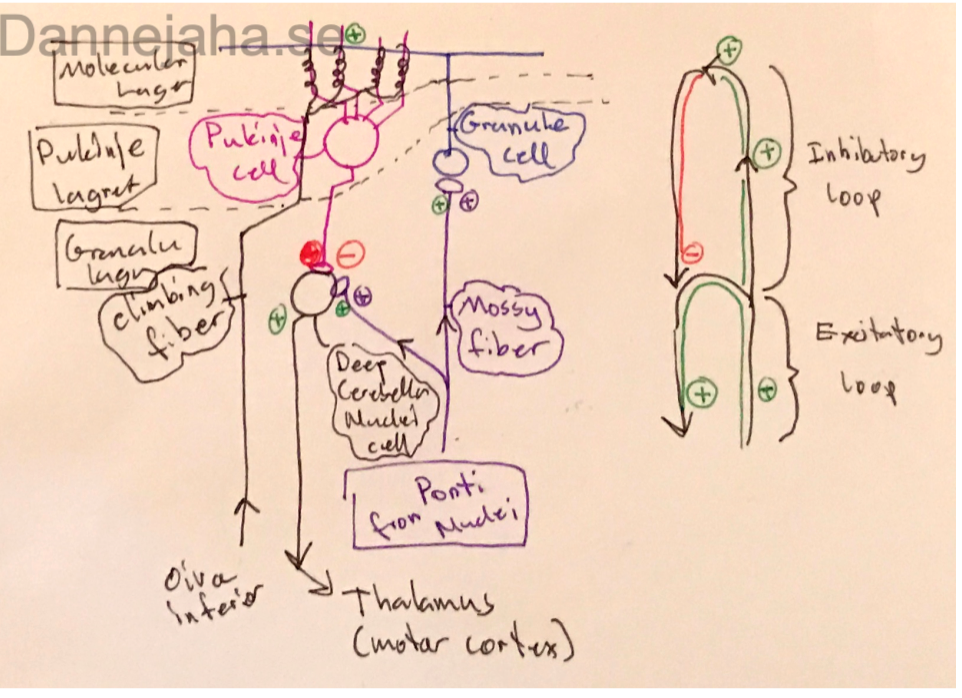 Dannejaha.se
Molecular
lager
Pukinje
lagret
Granular
lagret
Pukinje
cell
Granule
cell
climbing
fiber
Mossy
fiber
Deep
Cerebellar
Nuclei
cell
Ponti
from Nuclei
Oliva
inferior
Thalamus
(motor cortex)
Inhibatory
loop
Exitatory
loop
+
+
+
+
+
+
+
+
+
+
-
-